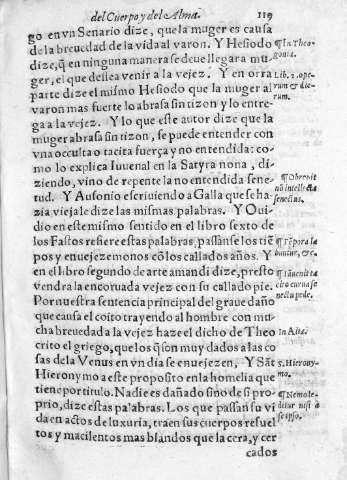 del Cuerpo y del Alma. 119
go en vn Senario dize, que la muger es causa
de la breuedad de la vida al varon. Y Hesiodo
dize, q̃ en ninguna manera se deue llegar a mu-
ger, el que dessea venir a la vejez. Y en otra
parte dize el mismo Hesiodo que la muger al
varon mas fuerte lo abrasa sin tizon y lo entre-
ga a la vejez. Y lo que este autor dize que la
muger abrasa sin tizon, se puede entender con
vna occulta o tacita fuerça y no entendida: co-
mo lo explica Iuuenal en la Satyra nona, di-
ziendo, vino de repente la no entendida sene-
tud. Y Ausonio escriuiendo a Galla que se ha-
zia vieja le dize las mismas palabras. Y Oui-
dio en este mismo sentido en el libro sexto de
los Fastos refiere estas palabras, passanse los tiẽ-
pos y enuejezemonos cõ los callados años. Y
en el libro segundo de arte amandi dize, presto
vendra la encoruada vejez con su callado pie.
Por nuestra sentencia principal del graue daño
que causa el coito trayendo al hombre con mu-
cha breuedad a la vejez haze el dicho de Theo
crito el griego, que los q̃ son muy dados a las co
sas de la Venus en vn dia se enuejezen, Y Sãt
Hieronymo a este proposito en la homelia que
tiene por titulo. Nadie es dañado sino de si pro-
prio, dize estas palabras. Los que passan su vi
da en actos de luxuria, traen sus cuerpos refuel
tos y macilentos mas blandos que la cera, y cer
cados
¶ In Theo-
gonia.
Lib. 2. ope-
rum & die-
rum.
¶ Obrepsit
nõ intellecta
senectus.
¶ Tẽpora la
buntur, &c.
¶ Iam venit ta
cito curua se
nectu pede.
In Aita.
S. Hierony-
mo.
¶ Nemo læ-
ditur nisi à
se ipso.